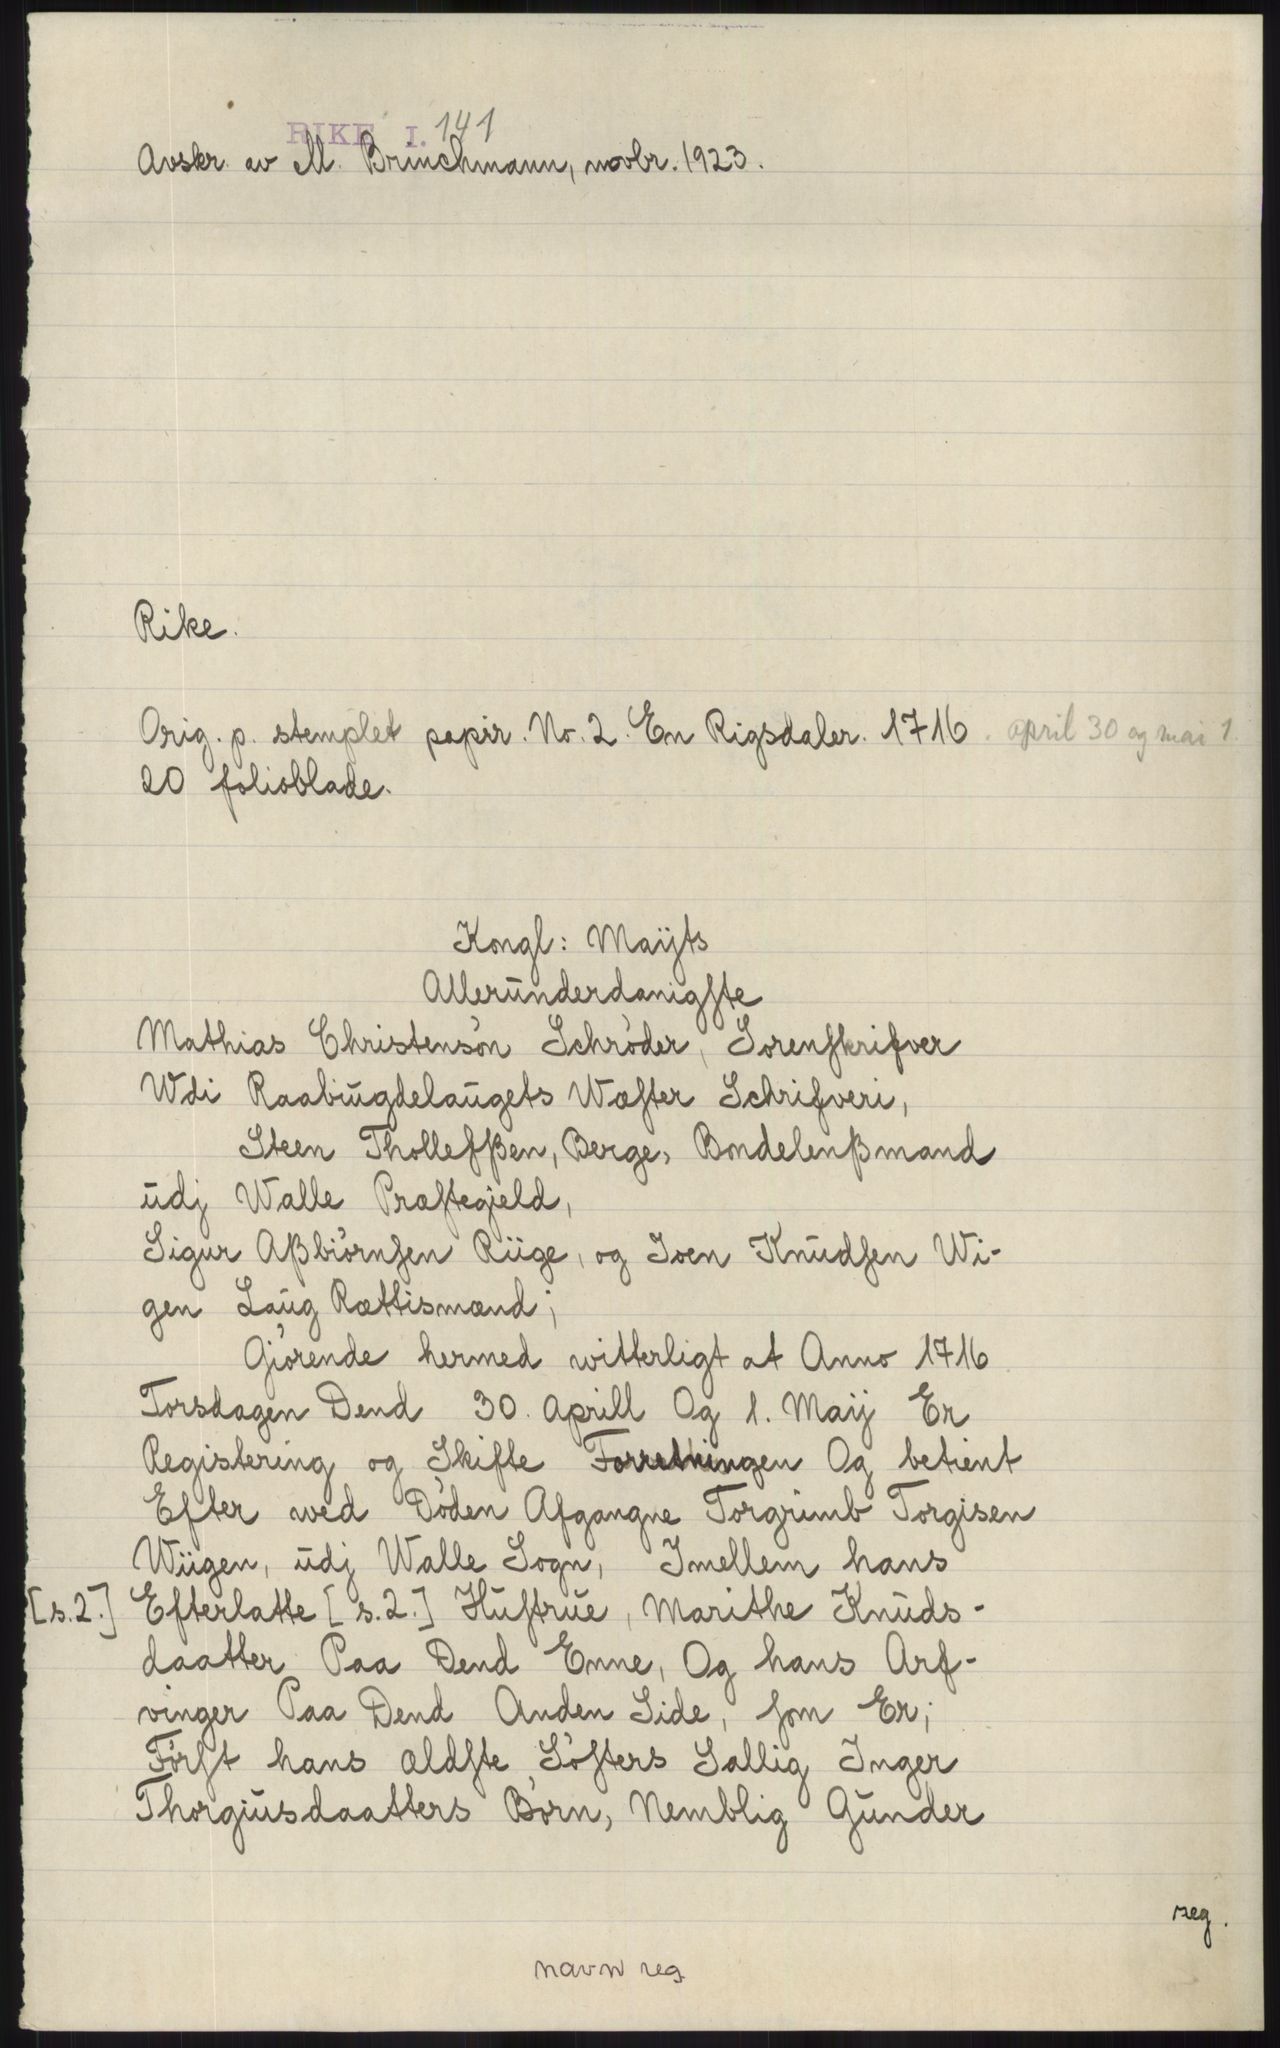 RIKE I. 141
Avskr. av M. Brinchmann, novbr. 1923.
Rike.
Orig. p. stemplet papir. No. 2. En Rigsdaler. 1716. april 30 og mai 1.
20 folioblade.
Kongl: Maÿts
Allerunderdanigste
Mathias Christensøn Schrøder, Sorenskrifver
Wdi Raabiugdelaugets Wæster Schrifveri,
Steen Thollefßen, Berge, Bondelenßmand
udj Walle Præstegjeld,
Sigur Aßbiørnsen Riige, og Joen Knudsen Wi-
gen Laug Rættismænd;
Giørende hermed witterligt at Anno 1716
Torsdagen Dend 30. Aprill Og 1. Maij Er
Registering og Skifte Forretningen Og betient
Efter wed Døden Afgangne Torgrimb Torgisen
Wiigen, udj Walle Sogn, Imellem hans
[s.2.] Efterlatte [s.2.] Hustrue, Marithe Knuds-
daatter Paa Dend Enne, Og hans Arf-
vinger Paa Dend Anden Side, som Er;
Først hans ældste Søsters Sallig Inger
Thorgiusdaatters Børn, Nemblig Gunder
reg.
navn reg